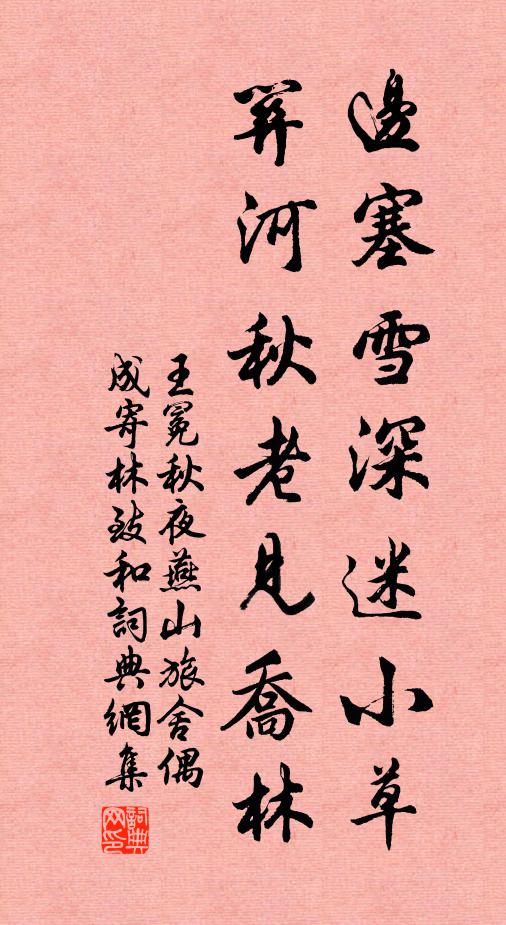 邊塞雪深迷小草
關河秋老見喬林
王冕秋夜燕山旅舍偶
成寄林致和詞典網集
詞典
网印